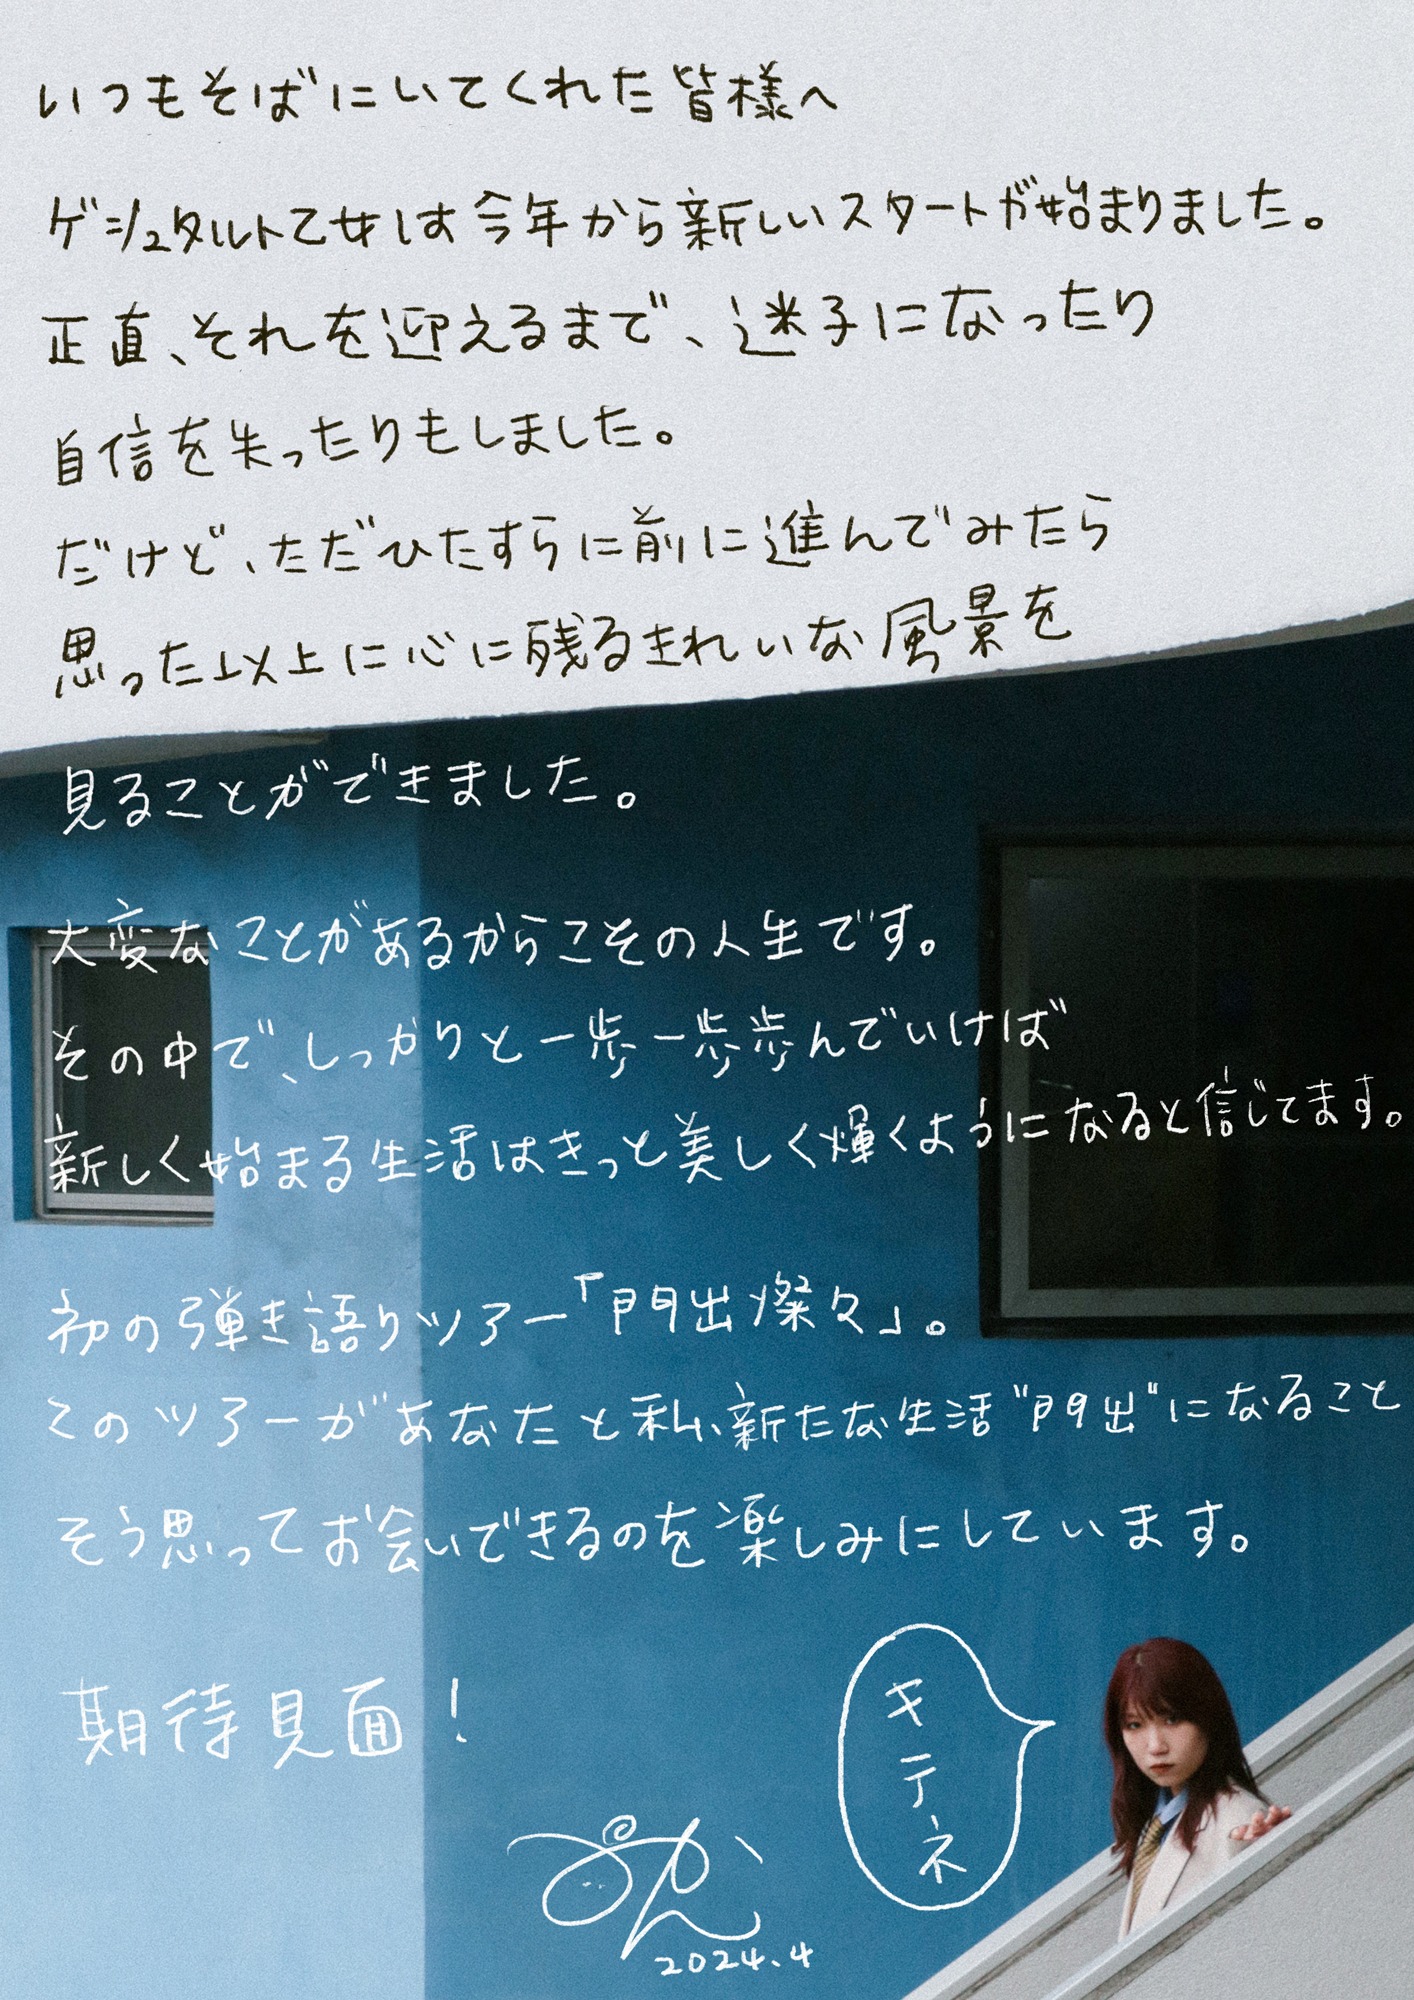 いつもそばにいてくれた皆様へ
ゲシュタルト乙女は今年から新しいスタートが始まりました。
正直、それを迎えるまで、迷子になったり
自信を失ったりもしました。
だけど、ただひたすらに前に進んでみたら
思った以上に心に残るきれいな風景を
見ることができました。
大変なことがあるからこその人生です。
その中で、しっかりと一歩一歩歩んでいけば
新しく始まる生活はきっと美しく輝くようになると信じてます。
初の弾き語りツアー「門出燦々」。
このツアーがあなたと私、新たな生活"門出"になること
そう思ってお会いできるのを楽しみにしています。
期待見面!
キテネ
2024.4